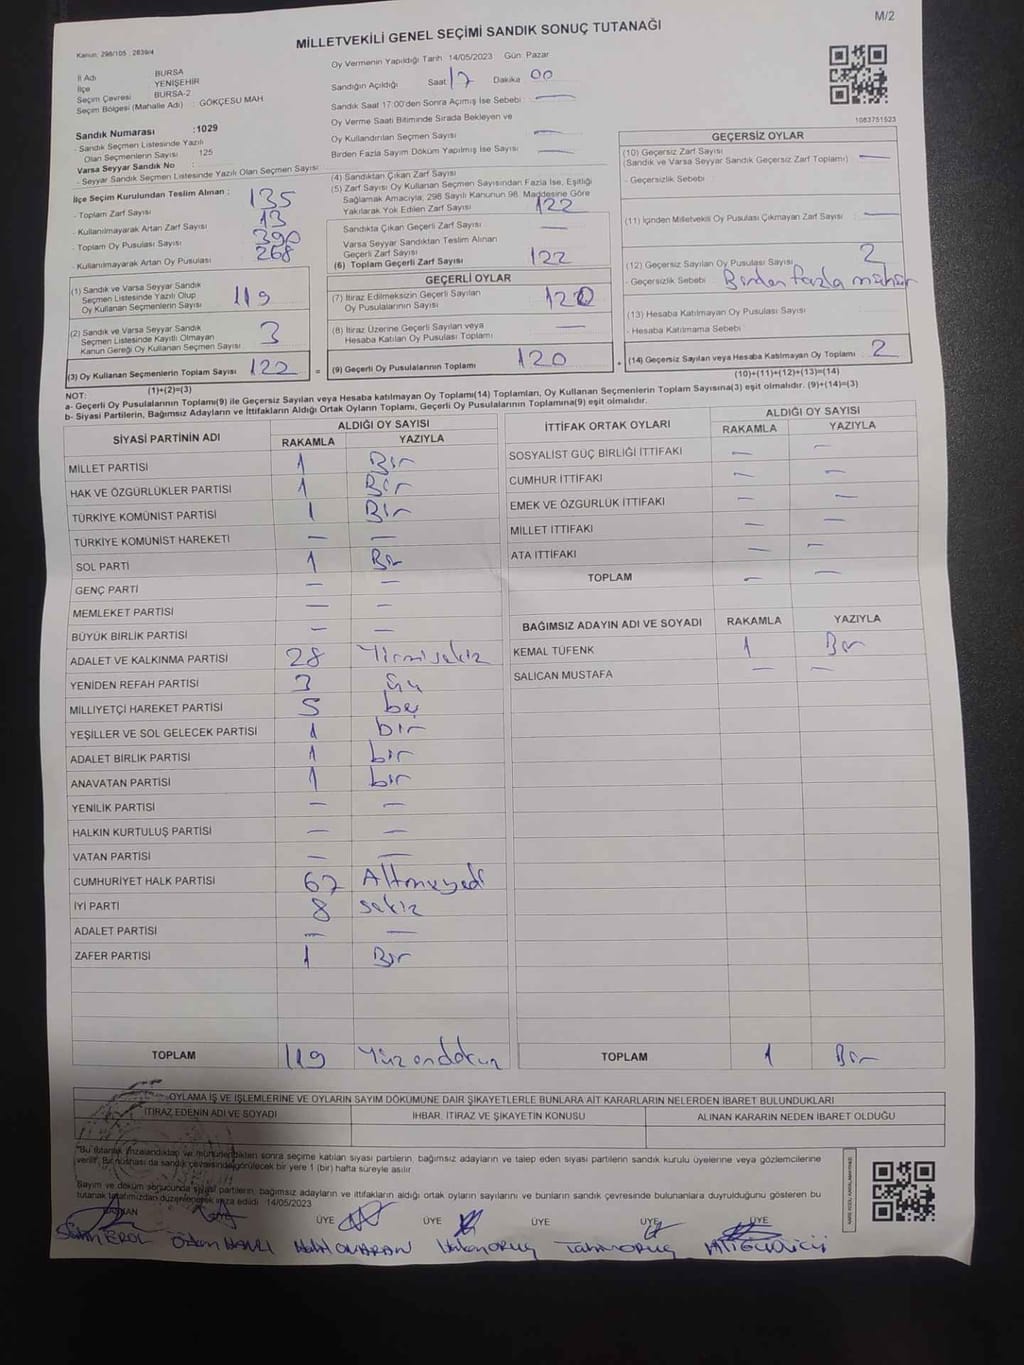 M/2
MİLLETVEKİLİ GENEL SEÇİMİ SANDIK SONUÇ TUTANAĞI
Kanun: 298/105 , 2839/4
İl Adı BURSA
İlçe YENİŞEHİR
Seçim Çevresi BURSA-2
Seçim Bölgesi (Mahalle Adı) : GÖKÇESU MAH
Sandık Numarası :1029
- Sandık Seçmen Listesinde Yazılı
Olan Seçmenlerin Sayısı 125
Varsa Seyyar Sandık No :
- Seyyar Sandık Seçmen Listesinde Yazılı Olan Seçmen Sayısı
İlçe Seçim Kurulundan Teslim Alınan :
- Toplam Zarf Sayısı 135
- Kullanılmayarak Artan Zarf Sayısı 13
- Toplam Oy Pusulası Sayısı 390
- Kullanılmayarak Artan Oy Pusulası 268
(1) Sandık ve Varsa Seyyar Sandık
Seçmen Listesinde Yazılı Olup
Oy Kullanan Seçmenlerin Sayısı 119
(2) Sandık ve Varsa Seyyar Sandık
Seçmen Listesinde Kayıtlı Olmayan
Kanun Gereği Oy Kullanan Seçmen Sayısı 3
(3) Oy Kullanan Seçmenlerin Toplam Sayısı 122
(1)+(2)=(3)
Oy Vermenin Yapıldığı Tarih 14/05/2023 Gün: Pazar
Sandığın Açıldığı Saat 17 Dakika 00
Sandık Saat 17:00'den Sonra Açımış İse Sebebi : —
Oy Verme Saati Bitiminde Sırada Bekleyen ve
Oy Kullandırılan Seçmen Sayısı —
Birden Fazla Sayım Döküm Yapılmış İse Sayısı —
(4) Sandıktan Çıkan Zarf Sayısı
(5) Zarf Sayısı Oy Kullanan Seçmen Sayısından Fazla İse, Eşitliği
Sağlamak Amacıyla, 298 Sayılı Kanunun 98. Maddesine Göre
Yakılarak Yok Edilen Zarf Sayısı 122
Sandıkta Çıkan Geçerli Zarf Sayısı —
Varsa Seyyar Sandıktan Teslim Alınan
Geçerli Zarf Sayısı
(6) Toplam Geçerli Zarf Sayısı 122
GEÇERLİ OYLAR
(7) İtiraz Edilmeksizin Geçerli Sayılan
Oy Pusulasının Sayısı 120
(8) İtiraz Üzerine Geçerli Sayılan veya
Hesaba Katılan Oy Pusulası Toplamı —
= (9) Geçerli Oy Pusulalarının Toplamı 120
1083751523
GEÇERSİZ OYLAR
(10) Geçersiz Zarf Sayısı
(Sandık ve Varsa Seyyar Sandık Geçersiz Zarf Toplamı) —
- Geçersizlik Sebebi
(11) İçinden Milletvekili Oy Pusulası Çıkmayan Zarf Sayısı —
(12) Geçersiz Sayılan Oy Pusulası Sayısı 2
- Geçersizlik Sebebi Birden fazla mühür
(13) Hesaba Katılmayan Oy Pusulası Sayısı
- Hesaba Katılmama Sebebi
+ (14) Geçersiz Sayılan veya Hesaba Katılmayan Oy Toplamı 2
(10)+(11)+(12)+(13)=(14)
NOT:
a- Geçerli Oy Pusulalarının Toplamı(9) ile Geçersiz Sayılan veya Hesaba katılmayan Oy Toplamı(14) Toplamları, Oy Kullanan Seçmenlerin Toplam Sayısına(3) eşit olmalıdır. (9)+(14)=(3)
b- Siyasi Partilerin, Bağımsız Adayların ve İttifakların Aldığı Ortak Oyların Toplamı, Geçerli Oy Pusulalarının Toplamına(9) eşit olmalıdır.
SİYASİ PARTİNİN ADI ALDIĞI OY SAYISI
RAKAMLA YAZIYLA
MİLLET PARTİSİ 1 Bir
HAK VE ÖZGÜRLÜKLER PARTİSİ 1 Bir
TÜRKİYE KOMÜNİST PARTİSİ 1 Bir
TÜRKİYE KOMÜNİST HAREKETİ — —
SOL PARTİ 1 Bir
GENÇ PARTİ — —
MEMLEKET PARTİSİ — —
BÜYÜK BİRLİK PARTİSİ — —
ADALET VE KALKINMA PARTİSİ 28 Yirmisekiz
YENİDEN REFAH PARTİSİ 3 üç
MİLLİYETÇİ HAREKET PARTİSİ 5 beş
YEŞİLLER VE SOL GELECEK PARTİSİ 1 bir
ADALET BİRLİK PARTİSİ 1 bir
ANAVATAN PARTİSİ 1 bir
YENİLİK PARTİSİ — —
HALKIN KURTULUŞ PARTİSİ — —
VATAN PARTİSİ — —
CUMHURİYET HALK PARTİSİ 67 Altmışyedi
İYİ PARTİ 8 sekiz
ADALET PARTİSİ — —
ZAFER PARTİSİ 1 Bir
TOPLAM 119 Yüzondokuz
İTTİFAK ORTAK OYLARI ALDIĞI OY SAYISI
RAKAMLA YAZIYLA
SOSYALİST GÜÇ BİRLİĞİ İTTİFAKI — —
CUMHUR İTTİFAKI — —
EMEK VE ÖZGÜRLÜK İTTİFAKI — —
MİLLET İTTİFAKI — —
ATA İTTİFAKI — —
TOPLAM — —
BAĞIMSIZ ADAYIN ADI VE SOYADI RAKAMLA YAZIYLA
KEMAL TÜFENK 1 Bir
SALICAN MUSTAFA — —
TOPLAM 1 Bir
OYLAMA İŞ VE İŞLEMLERİNE VE OYLARIN SAYIM DÖKÜMÜNE DAİR ŞİKAYETLERLE BUNLARA AİT KARARLARIN NELERDEN İBARET BULUNDUKLARI
İTİRAZ EDENİN ADI VE SOYADI İHBAR, İTİRAZ VE ŞİKAYETİN KONUSU ALINAN KARARIN NEDEN İBARET OLDUĞU
"Bu tutanak imzalandıktan ve mühürlendikten sonra seçime katılan siyasi partilerin, bağımsız adayların ve talep eden siyasi partilerin sandık kurulu üyelerine veya gözlemcilerine
verilir. Bir nüshası da sandık çevresinde görülecek bir yere 1 (bir) hafta süreyle asılır.
Sayım ve döküm sonucunda siyasi partilerin, bağımsız adayların ve ittifakların aldığı ortak oyların sayılarını ve bunların sandık çevresinde bulunanlara duyrulduğunu gösteren bu
tutanak tarafımızdan düzenlenerek imza edildi 14/05/2023
BAŞKAN ÜYE ÜYE ÜYE ÜYE ÜYE
EROL Özlem Halil Hakan ORUÇ Tahir ORUÇ